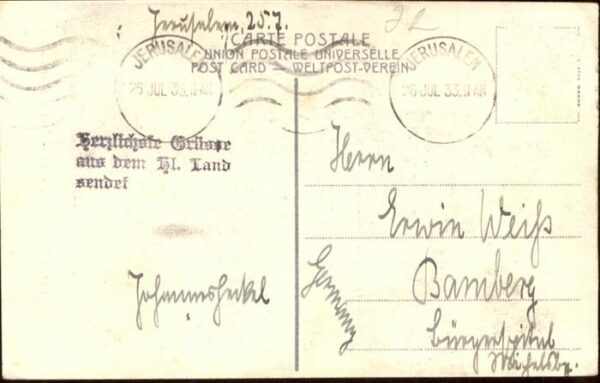 Jerusalem, 25.7.
CARTE POSTALE
UNION POSTALE UNIVERSELLE
POST CARD – WELTPOST-VEREIN
JERUSALEM
26 JUL 33. 11 AM
JERUSALEM
26 JUL 33. 11 AM
Herzlichste Grüsse
aus dem Hl. Land
sendet
Herrn
Erwin Weiß
Bamberg
Bürgerspital
Michelsbg.
Germany